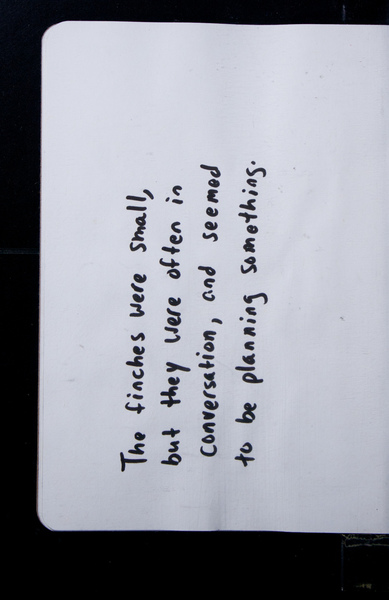 The finches were small,
but they were often in
conversation, and seemed
to be planning something.